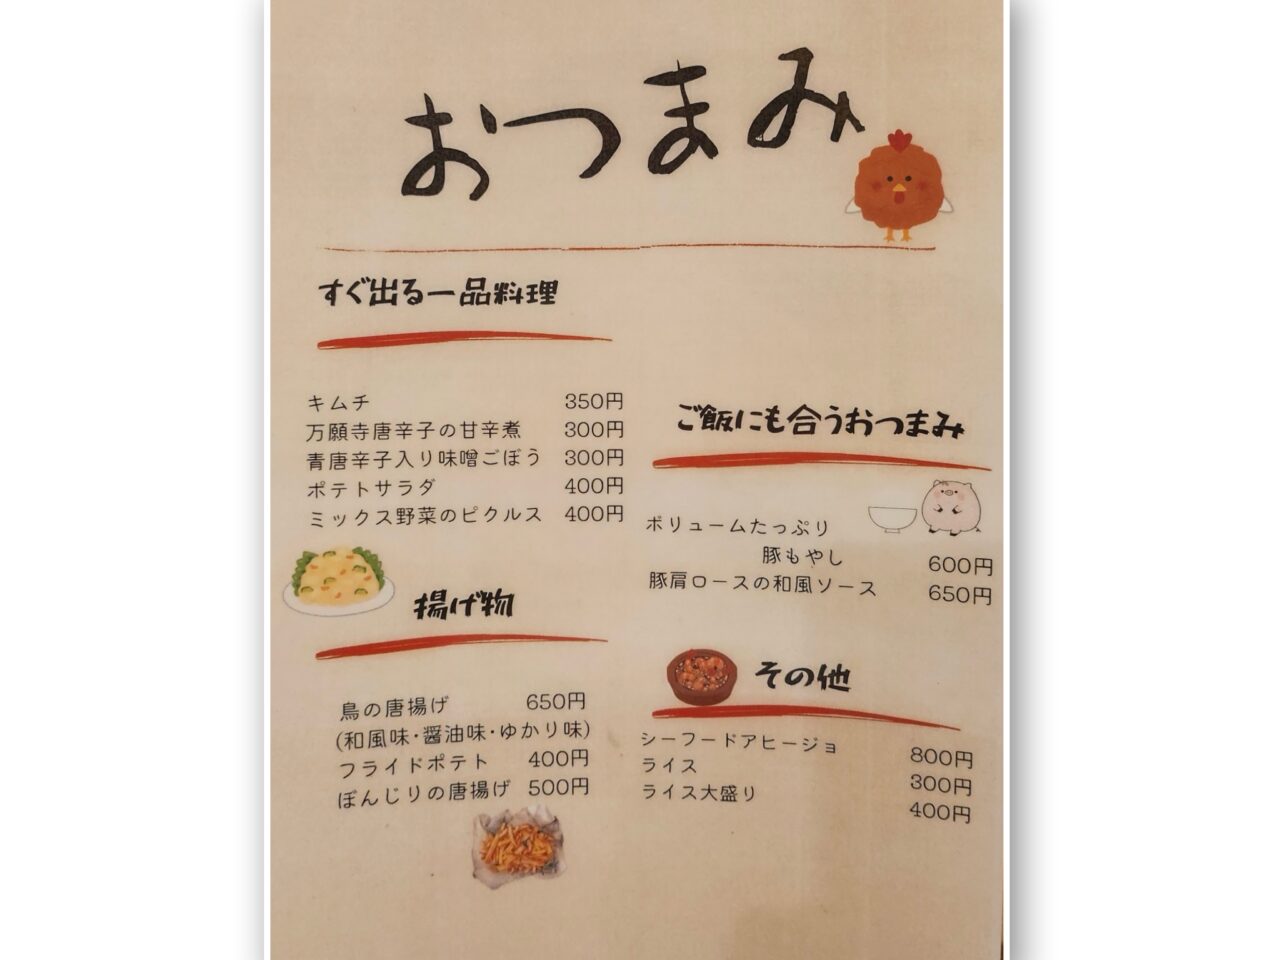 おつまみ
すぐ出る一品料理
キムチ 350円
万願寺唐辛子の甘辛煮 300円
青唐辛子入り味噌ごぼう 300円
ポテトサラダ 400円
ミックス野菜のピクルス 400円
揚げ物
鳥の唐揚げ 650円
(和風味・醤油味・ゆかり味)
フライドポテト 400円
ぼんじりの唐揚げ 500円
ご飯にも合うおつまみ
ボリュームたっぷり
豚もやし 600円
豚肩ロースの和風ソース 650円
その他
シーフードアヒージョ 800円
ライス 300円
ライス大盛り 400円